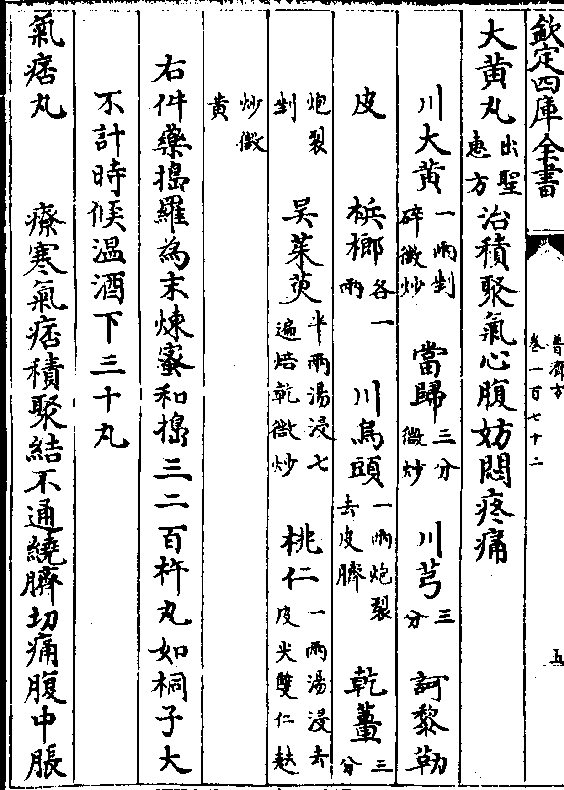 欽定四庫全書
普濟方
卷一百七十二
五
大黃丸出聖惠方治積聚氣心腹妨悶疼痛
川大黃一兩剉碎微炒 當歸三分微炒 川芎三分 訶黎勒
皮 梹榔各一兩 川烏頭一兩炮裂去皮臍 乾薑三分
炮裂剉 吳茱萸半兩湯浸七遍焙乾微炒 桃仁一兩湯浸去皮尖雙仁麩
炒微黃
右件藥搗羅為末煉蜜和搗三二百杵丸如桐子大
不計時候溫酒下三十丸
氣痞丸 療寒氣痞積聚結不通繞臍切痛腹中脹